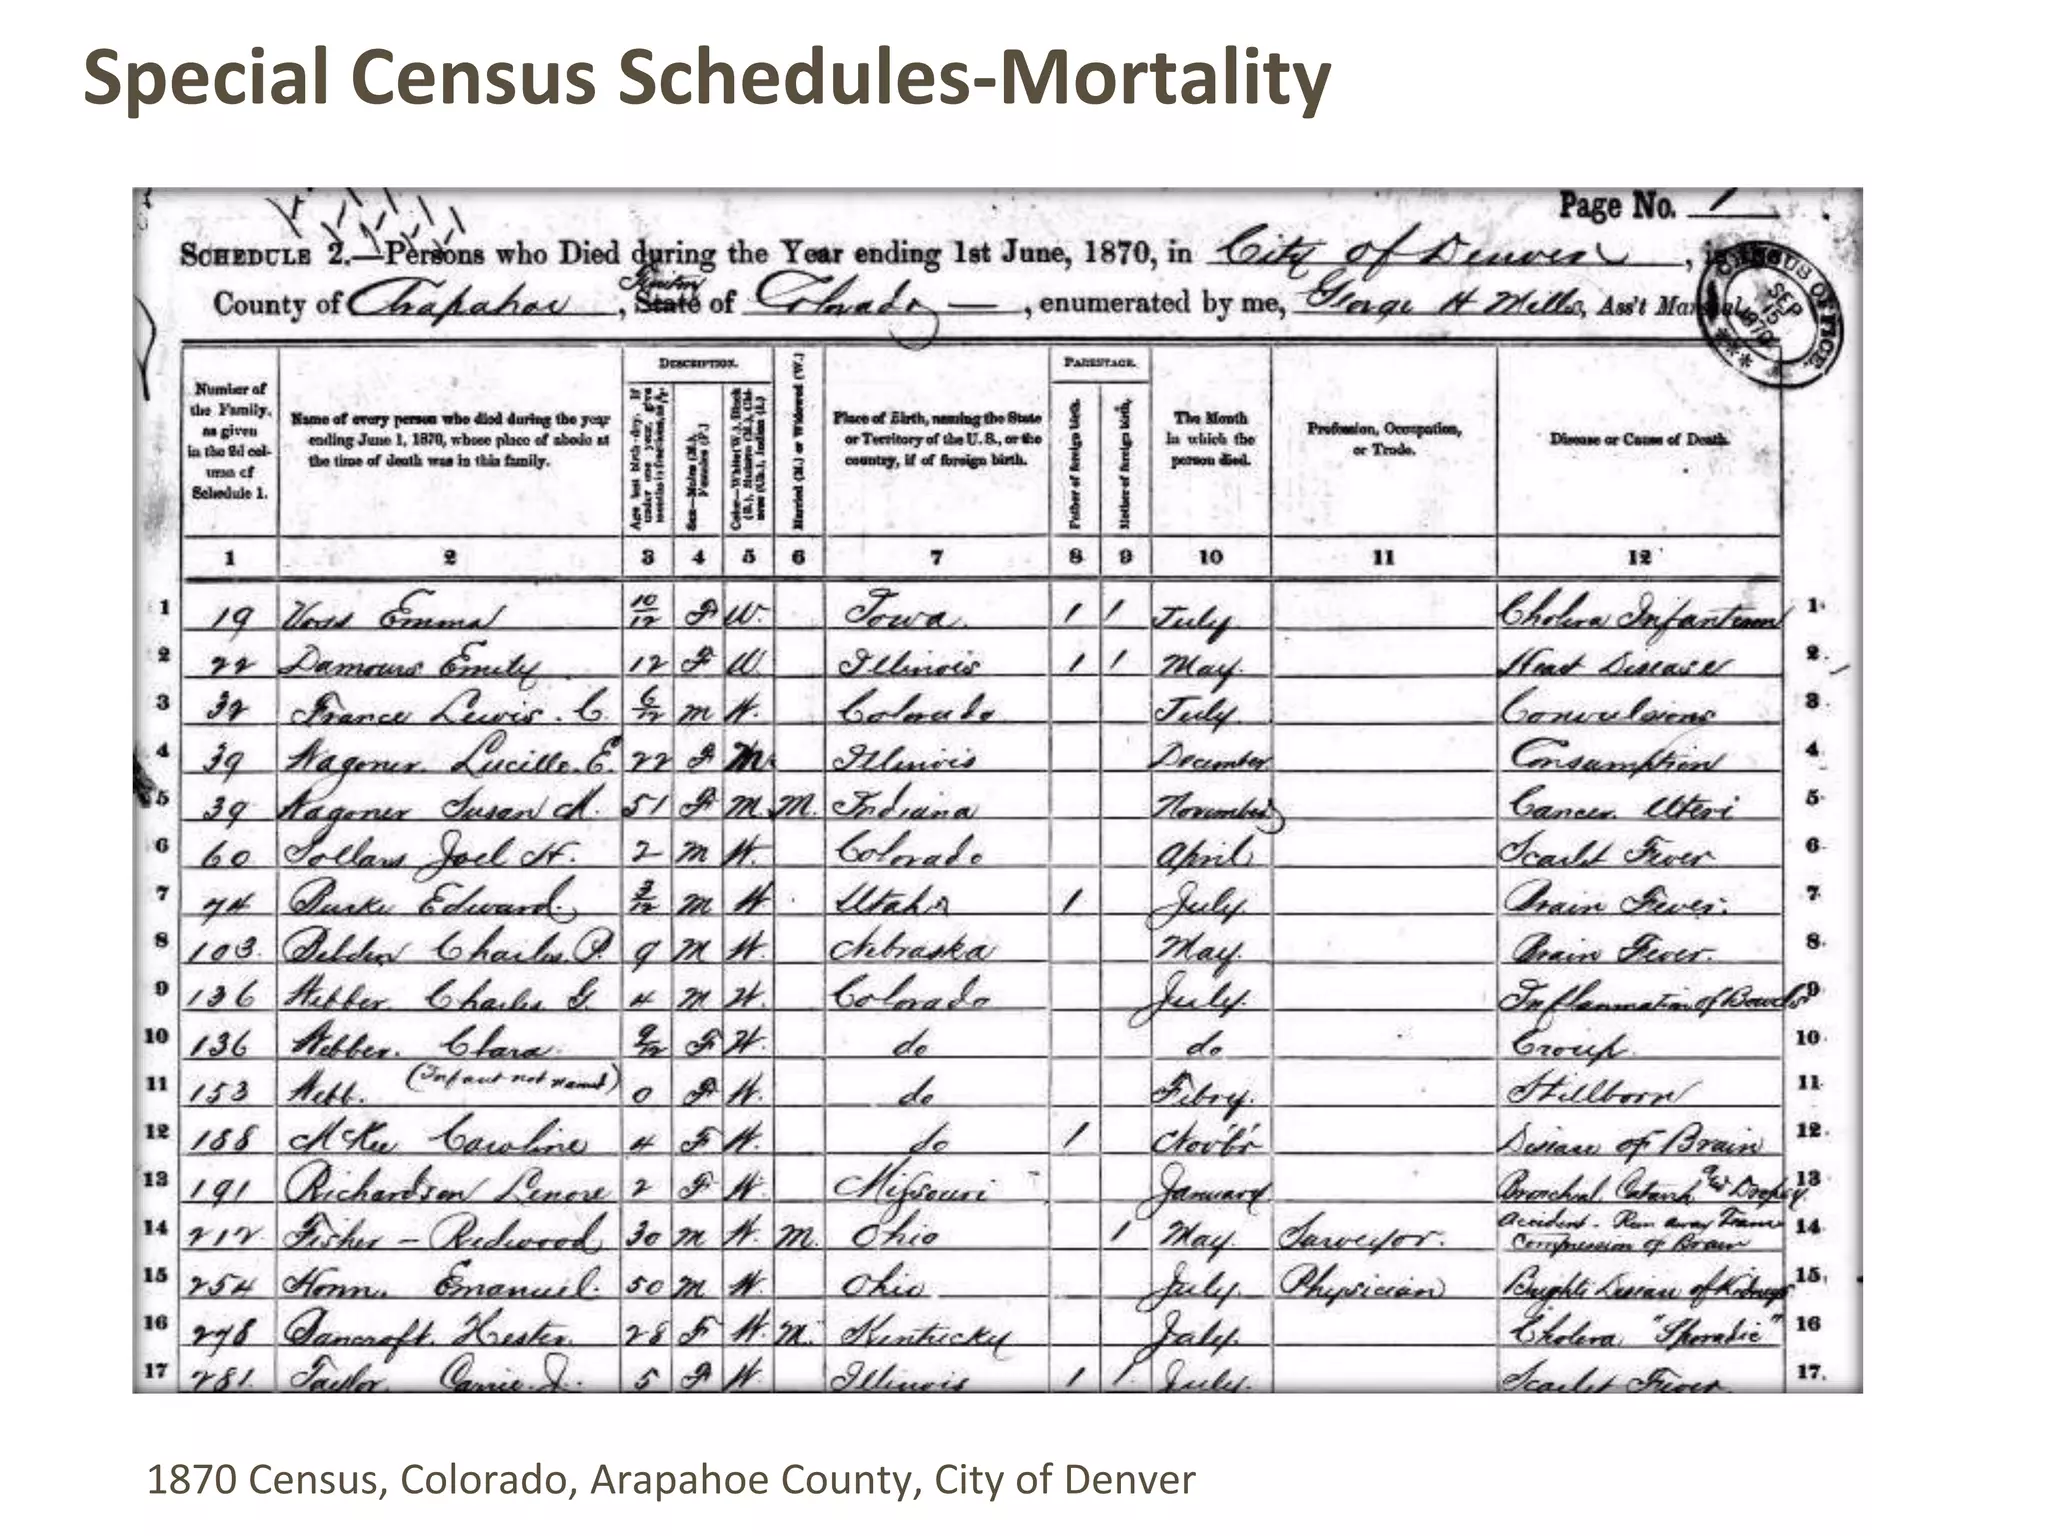 Special Census Schedules-Mortality
Page No. 1
SCHEDULE 2.—Persons who Died during the Year ending 1st June, 1870, in City of Denver, in
County of Arapahoe, State of Colorado, enumerated by me, George H Mills, Ass't Marshal.
CENSUS OFFICE. SEP 15 1870
DESCRIPTION. PARENTAGE.
Number of the Family, as given in the 2d column of Schedule 1.
Name of every person who died during the year ending June 1, 1870, whose place of abode at the time of death was in this family.
Age last birth-day. If under one year, give months in fractions, as
Sex—Males (M.), Females (F.)
Color—White (W.), Black (B.), Mulatto (M.), Chinese (Ch.), Indian (I.)
Married (M.) or Widowed (W.)
Place of Birth, naming the State or Territory of the U. S., or the country, if of foreign birth.
Father of foreign birth.
Mother of foreign birth.
The Month in which the person died.
Profession, Occupation, or Trade.
Disease or Cause of Death.
1 2 3 4 5 6 7 8 9 10 11 12
1 19 Voss Emma 10/12 F W. Iowa 1 1 July Cholera Infantum 1
2 22 Damours Emily 12 F W. Illinois 1 1 May. Heart Disease 2
3 32 France Lewis. C. 6/12 M W. Colorado July Convulsions 3
4 39 Wagoner. Lucille. E. 22 F M. Illinois December Consumption 4
5 39 Wagoner Susan M. 51 F M. M. Indiana November Cancer. Uteri 5
6 60 Sollars Joel H. 2 M W. Colorado April Scarlet Fever 6
7 74 Burke Edward. 3/12 M W Utah 1 July. Brain Fever. 7
8 103. Belden Charles. P. 9 M W. Nebraska May. Brain Fever. 8
9 136 Webber. Charles G. 4 M W. Colorado July. Inflammation of Bowels 9
10 136 Webber. Clara. 9/12 F W. do do Croup. 10
11 153 Webb. (Infant not named) 0 F W. do Febry. Stillborn 11
12 188 McKee Caroline 4 F W. do 1 Nov'br Disease of Brain 12
13 191 Richardson Lenore 2 F W. Missouri January Bronchial Catarrh Dropsy 13
14 212 Fisher – Redwood 30 M W. M. Ohio 1 May. Surveyor. Accident - Run away Team Compression of Brain 14
15 254 Honn. Emanuel. 50 M W. Ohio July. Physician Brights Disease of Kidneys 15
16 278 Bancroft. Hester. 28 F W. M. Kentucky July. Cholera "Sporadic" 16
17 281. Taylor. Carrie. J. 5 F W. Illinois 1 1 July. Scarlet Fever. 17.
1870 Census, Colorado, Arapahoe County, City of Denver